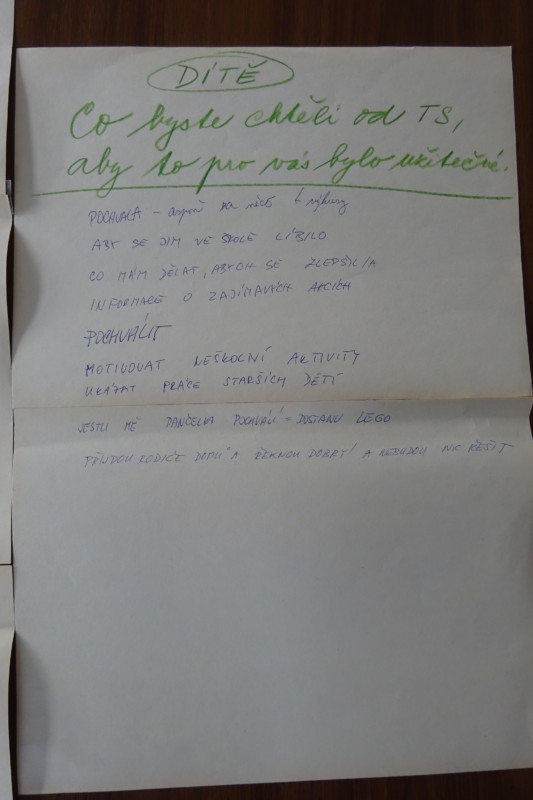 DÍTĚ
Co byste chtěli od TS,
aby to pro vás bylo užitečné.
POCHVALA - aspoň za něco
ABY SE JIM VE ŠKOLE LÍBILO
CO MÁM DĚLAT, ABYCH SE ZLEPŠIL/A
INFORMACE O ZAJÍMAVÝCH AKCÍCH
POCHVÁLIT
MOTIVOVAT NEŠKOLNÍ AKTIVITY
UKÁZAT PRÁCE STARŠÍCH DĚTÍ
JESTLI MĚ DANČELKA POCHVÁLÍ - DOSTANU LEGO
PŮJDOU RODIČE DOMŮ A ŘEKNOU DOBRÝ A NEBUDOU NIC ŘEŠIT